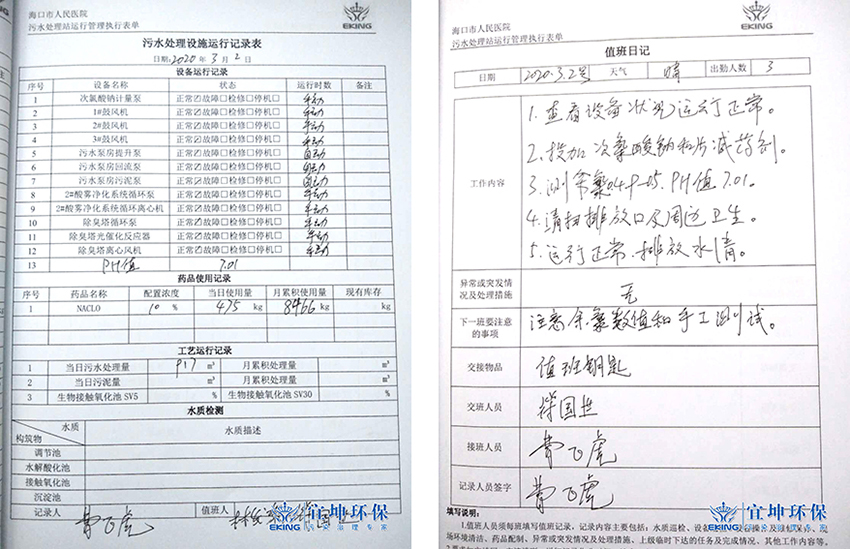 海口市人民医院
污水处理站运行管理执行表单
EKING
污水处理设施运行记录表
日期: 2020 年 3 月 2 日
设备运行记录
序号 设备名称 状态 运行时数 备注
1 次氯酸钠计量泵 正常☑故障□检修□停机□ 手动
2 1#鼓风机 正常☑故障□检修□停机□ 手动
3 2#鼓风机 正常☑故障□检修□停机□ 手动
4 3#鼓风机 正常☑故障□检修□停机□ 手动
5 污水泵房提升泵 正常☑故障□检修□停机□ 自动
6 污水泵房回流泵 正常☑故障□检修□停机□ 自动
7 污水泵房污泥泵 正常☑故障□检修□停机□ 自动
8 2#酸雾净化系统循环泵 正常☑故障□检修□停机□ 手动
9 2#酸雾净化系统循环离心机 正常☑故障□检修□停机□ 手动
10 除臭塔循环泵 正常☑故障□检修□停机□ 手动
11 除臭塔光催化反应器 正常☑故障□检修□停机□ 手动
12 除臭塔离心风机 正常☑故障□检修□停机□ 手动
13 PH值 7.01
药品使用记录
序号 药品名称 配置浓度 当日使用量 月累积使用量 现有库存
1 NACLO 10 % 475 kg 8466 kg kg
工艺运行记录
1 当日污水处理量 917 m³ 月累积处理量 m³
2 当日污泥量 m³ 月累积处理量 m³
3 生物接触氧化池 SV5 % 生物接触氧化池 SV30 %
水质检测
水质
构筑物
水质描述
调节池
水解酸化池
接触氧化池
沉淀池
记录人 曹飞虎 值班人
EKING 宜坤环保
海口市人民医院
污水处理站运行管理执行表单
EKING
值班日记
日期 2020.3.2号 天气 晴 出勤人数 3
工作内容
1. 查看设备状况运行正常。
2. 投加次氯酸钠和片减药剂。
3. 测余氯 PH值7.01.
4. 清扫排放口及周边卫生。
5. 运行正常.排放水清。
异常或突发情
况及处理措施
无
下一班要注意
的事项
注意余氯数值和手工测试。
交接物品 值班钥匙
交班人员
接班人员 曹飞虎
记录人员签字 曹飞虎
填写说明:
1.值班人员须每班填写值班记录，记录内容主要包括：水质巡检、设备
场环境清洁、药品配制、异常或突发情况及处理措施、上级临时下达的任务及完成情况、其他工作内容等。
EKING 宜坤环保